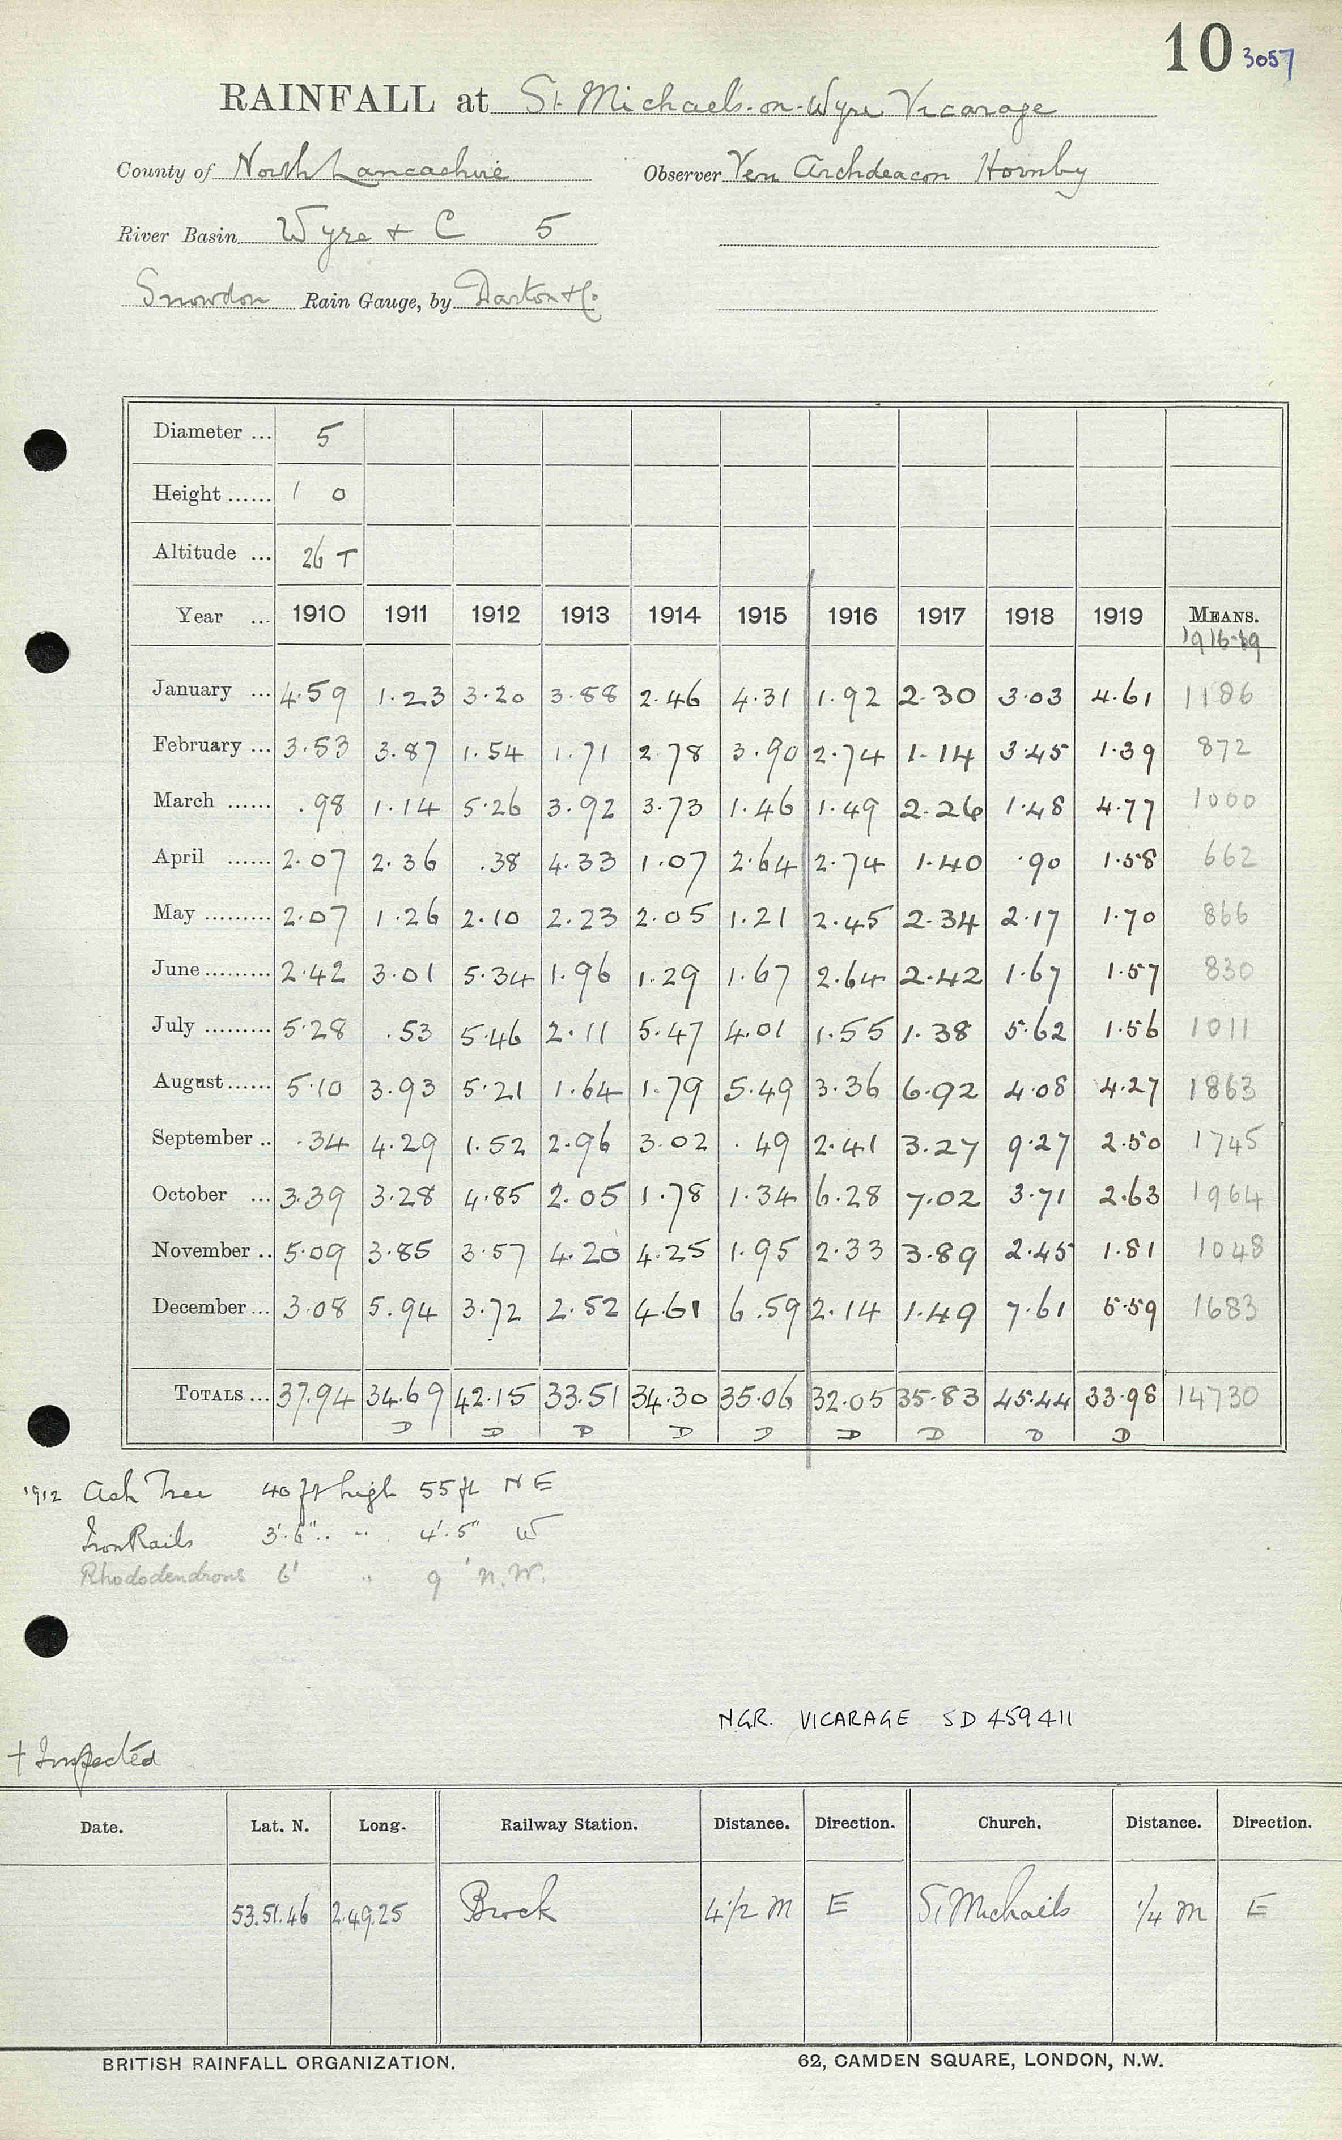 10 3057
RAINFALL at St. Michaels-on-Wyre Vicarage
County of North Lancashire Observer Ven Archdeacon Hornby
River Basin Wyre + C 5
Snowdon Rain Gauge, by Darton & Co.
Diameter ... 5
Height ...... 1 0
Altitude ... 26 T
Year ... 1910 1911 1912 1913 1914 1915 1916 1917 1918 1919 MEANS.
1916-19
January ... 4.59 1.23 3.20 3.88 2.46 4.31 1.92 2.30 3.03 4.61 1186
February ... 3.53 3.87 1.54 1.71 2.78 3.90 2.74 1.14 3.45 1.39 872
March ...... .98 1.14 5.26 3.92 3.73 1.46 1.49 2.26 1.48 4.77 1000
April ...... 2.07 2.36 .38 4.33 1.07 2.64 2.74 1.40 .90 1.58 662
May ......... 2.07 1.26 2.10 2.23 2.05 1.21 2.45 2.34 2.17 1.70 866
June ......... 2.42 3.01 5.34 1.96 1.29 1.67 2.64 2.42 1.67 1.57 830
July ......... 5.28 .53 5.46 2.11 5.47 4.01 1.55 1.38 5.62 1.56 1011
August ...... 5.10 3.93 5.21 1.64 1.79 5.49 3.36 6.92 4.08 4.27 1863
September .. .34 4.29 1.52 2.96 3.02 .49 2.41 3.27 9.27 2.50 1745
October ... 3.39 3.28 4.85 2.05 1.78 1.34 6.28 7.02 3.71 2.63 1964
November .. 5.09 3.85 3.57 4.20 4.25 1.95 2.33 3.89 2.45 1.81 1048
December ... 3.08 5.94 3.72 2.52 4.61 6.59 2.14 1.49 7.61 5.59 1683
TOTALS ... 37.94 34.69 42.15 33.51 34.30 35.06 32.05 35.83 45.44 33.98 14730
D D D D D D D D D
1912 Ash Tree 40 ft high 55 ft N E
Iron Rails 3'.6" " " 4'.5" W
Rhododendrons 6' " 9' N.W.
N.G.R. VICARAGE SD 459411
† Inspected
Date. Lat. N. Long. Railway Station. Distance. Direction. Church. Distance. Direction.
53.51.46 2.49.25 Brock 4 1/2 M E St Michaels 1/4 M E
BRITISH RAINFALL ORGANIZATION. 62, CAMDEN SQUARE, LONDON, N.W.